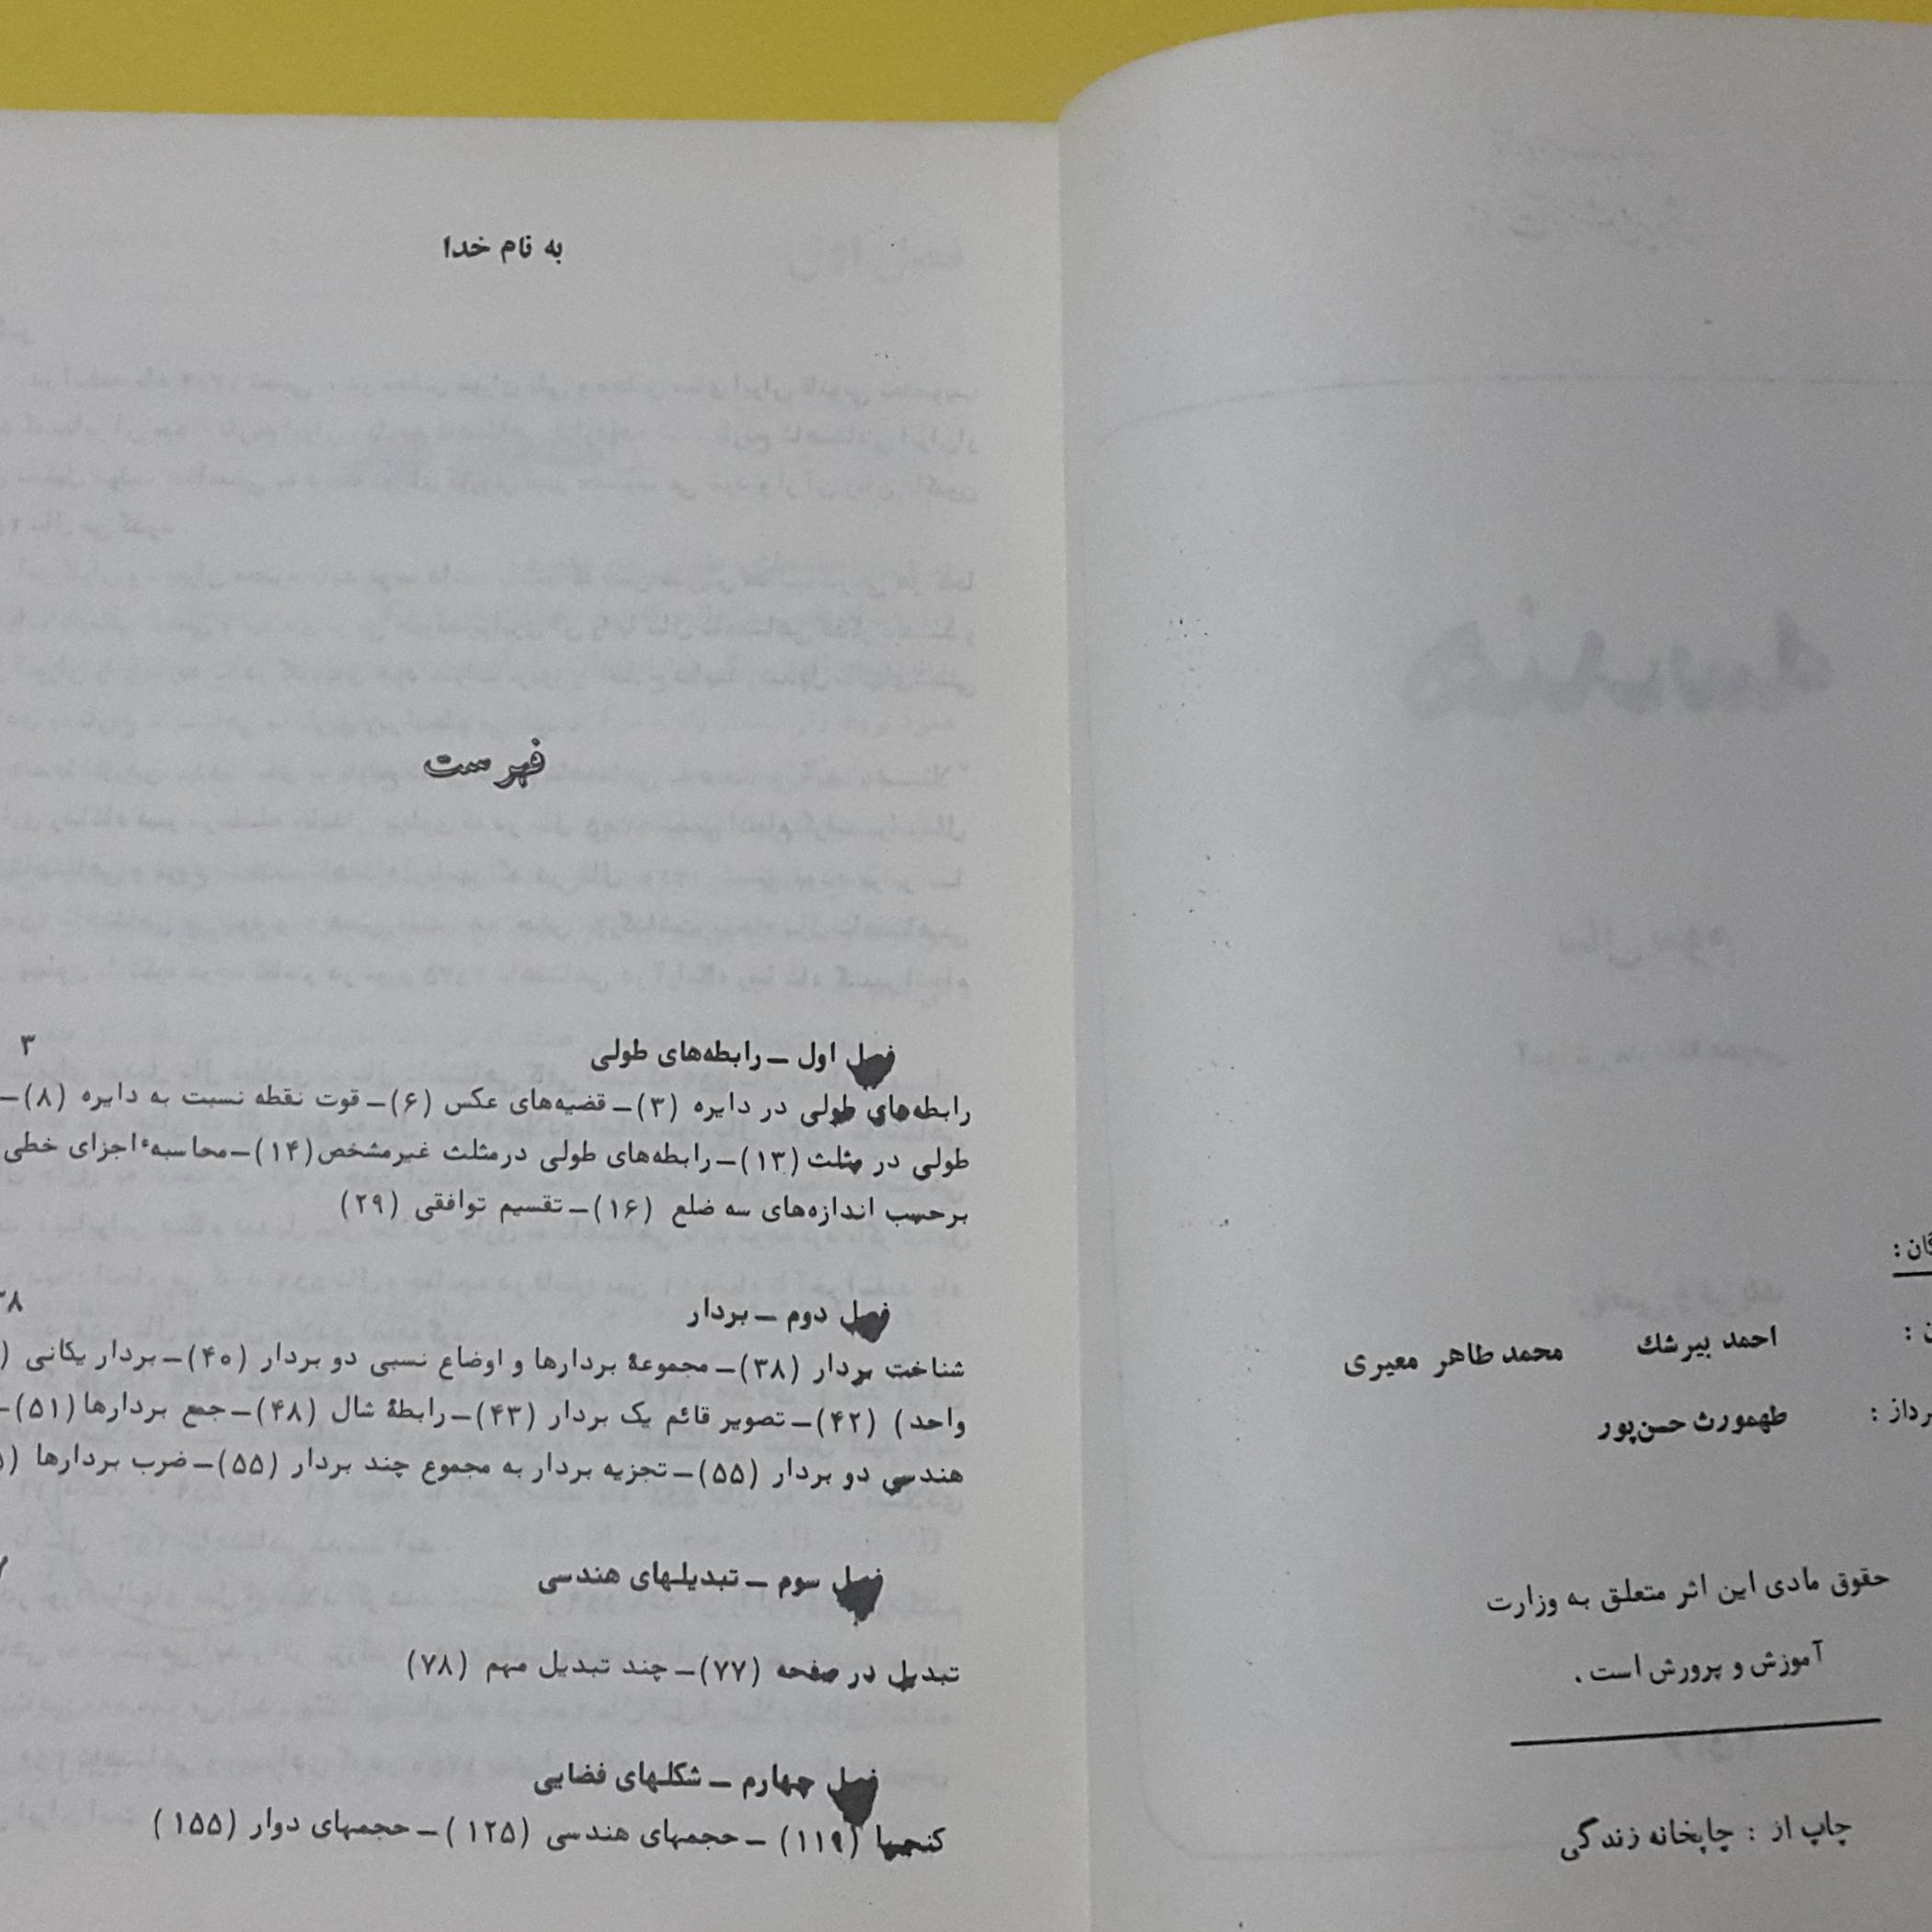 گان :
احمد بیرشك محمد طاهر معیری
رداز : طهمورث حسن‌پور
حقوق مادی این اثر متعلق به وزارت
آموزش و پرورش است .
چاپ از : چاپخانه زندگی
به نام خدا
فهرست
فصل اول – رابطه‌های طولی ۳
رابطه‌های طولی در دایره (۳)– قضیه‌های عکس (۶)– قوت نقطه نسبت به دایره (۸)–
طولی در مثلث (۱۳)– رابطه‌های طولی درمثلث غیرمشخص (۱۴)– محاسبهٔ اجزای خطی
برحسب اندازه‌های سه ضلع (۱۶)– تقسیم توافقی (۲۹)
فصل دوم – بردار ۳۸
شناخت بردار (۳۸)– مجموعهٔ بردارها و اوضاع نسبی دو بردار (۴۰)– بردار یکانی (
واحد) (۴۲)– تصویر قائم یک بردار (۴۳)– رابطهٔ شال (۴۸)– جمع بردارها (۵۱)–
هندسی دو بردار (۵۵)– تجزیه بردار به مجموع چند بردار (۵۵)– ضرب بردارها
فصل سوم – تبدیلهای هندسی
تبدیل در صفحه (۷۷)– چند تبدیل مهم (۷۸)
فصل چهارم – شکلهای فضایی
کنجها (۱۱۹) – حجمهای هندسی (۱۲۵) – حجمهای دوار (۱۵۵)